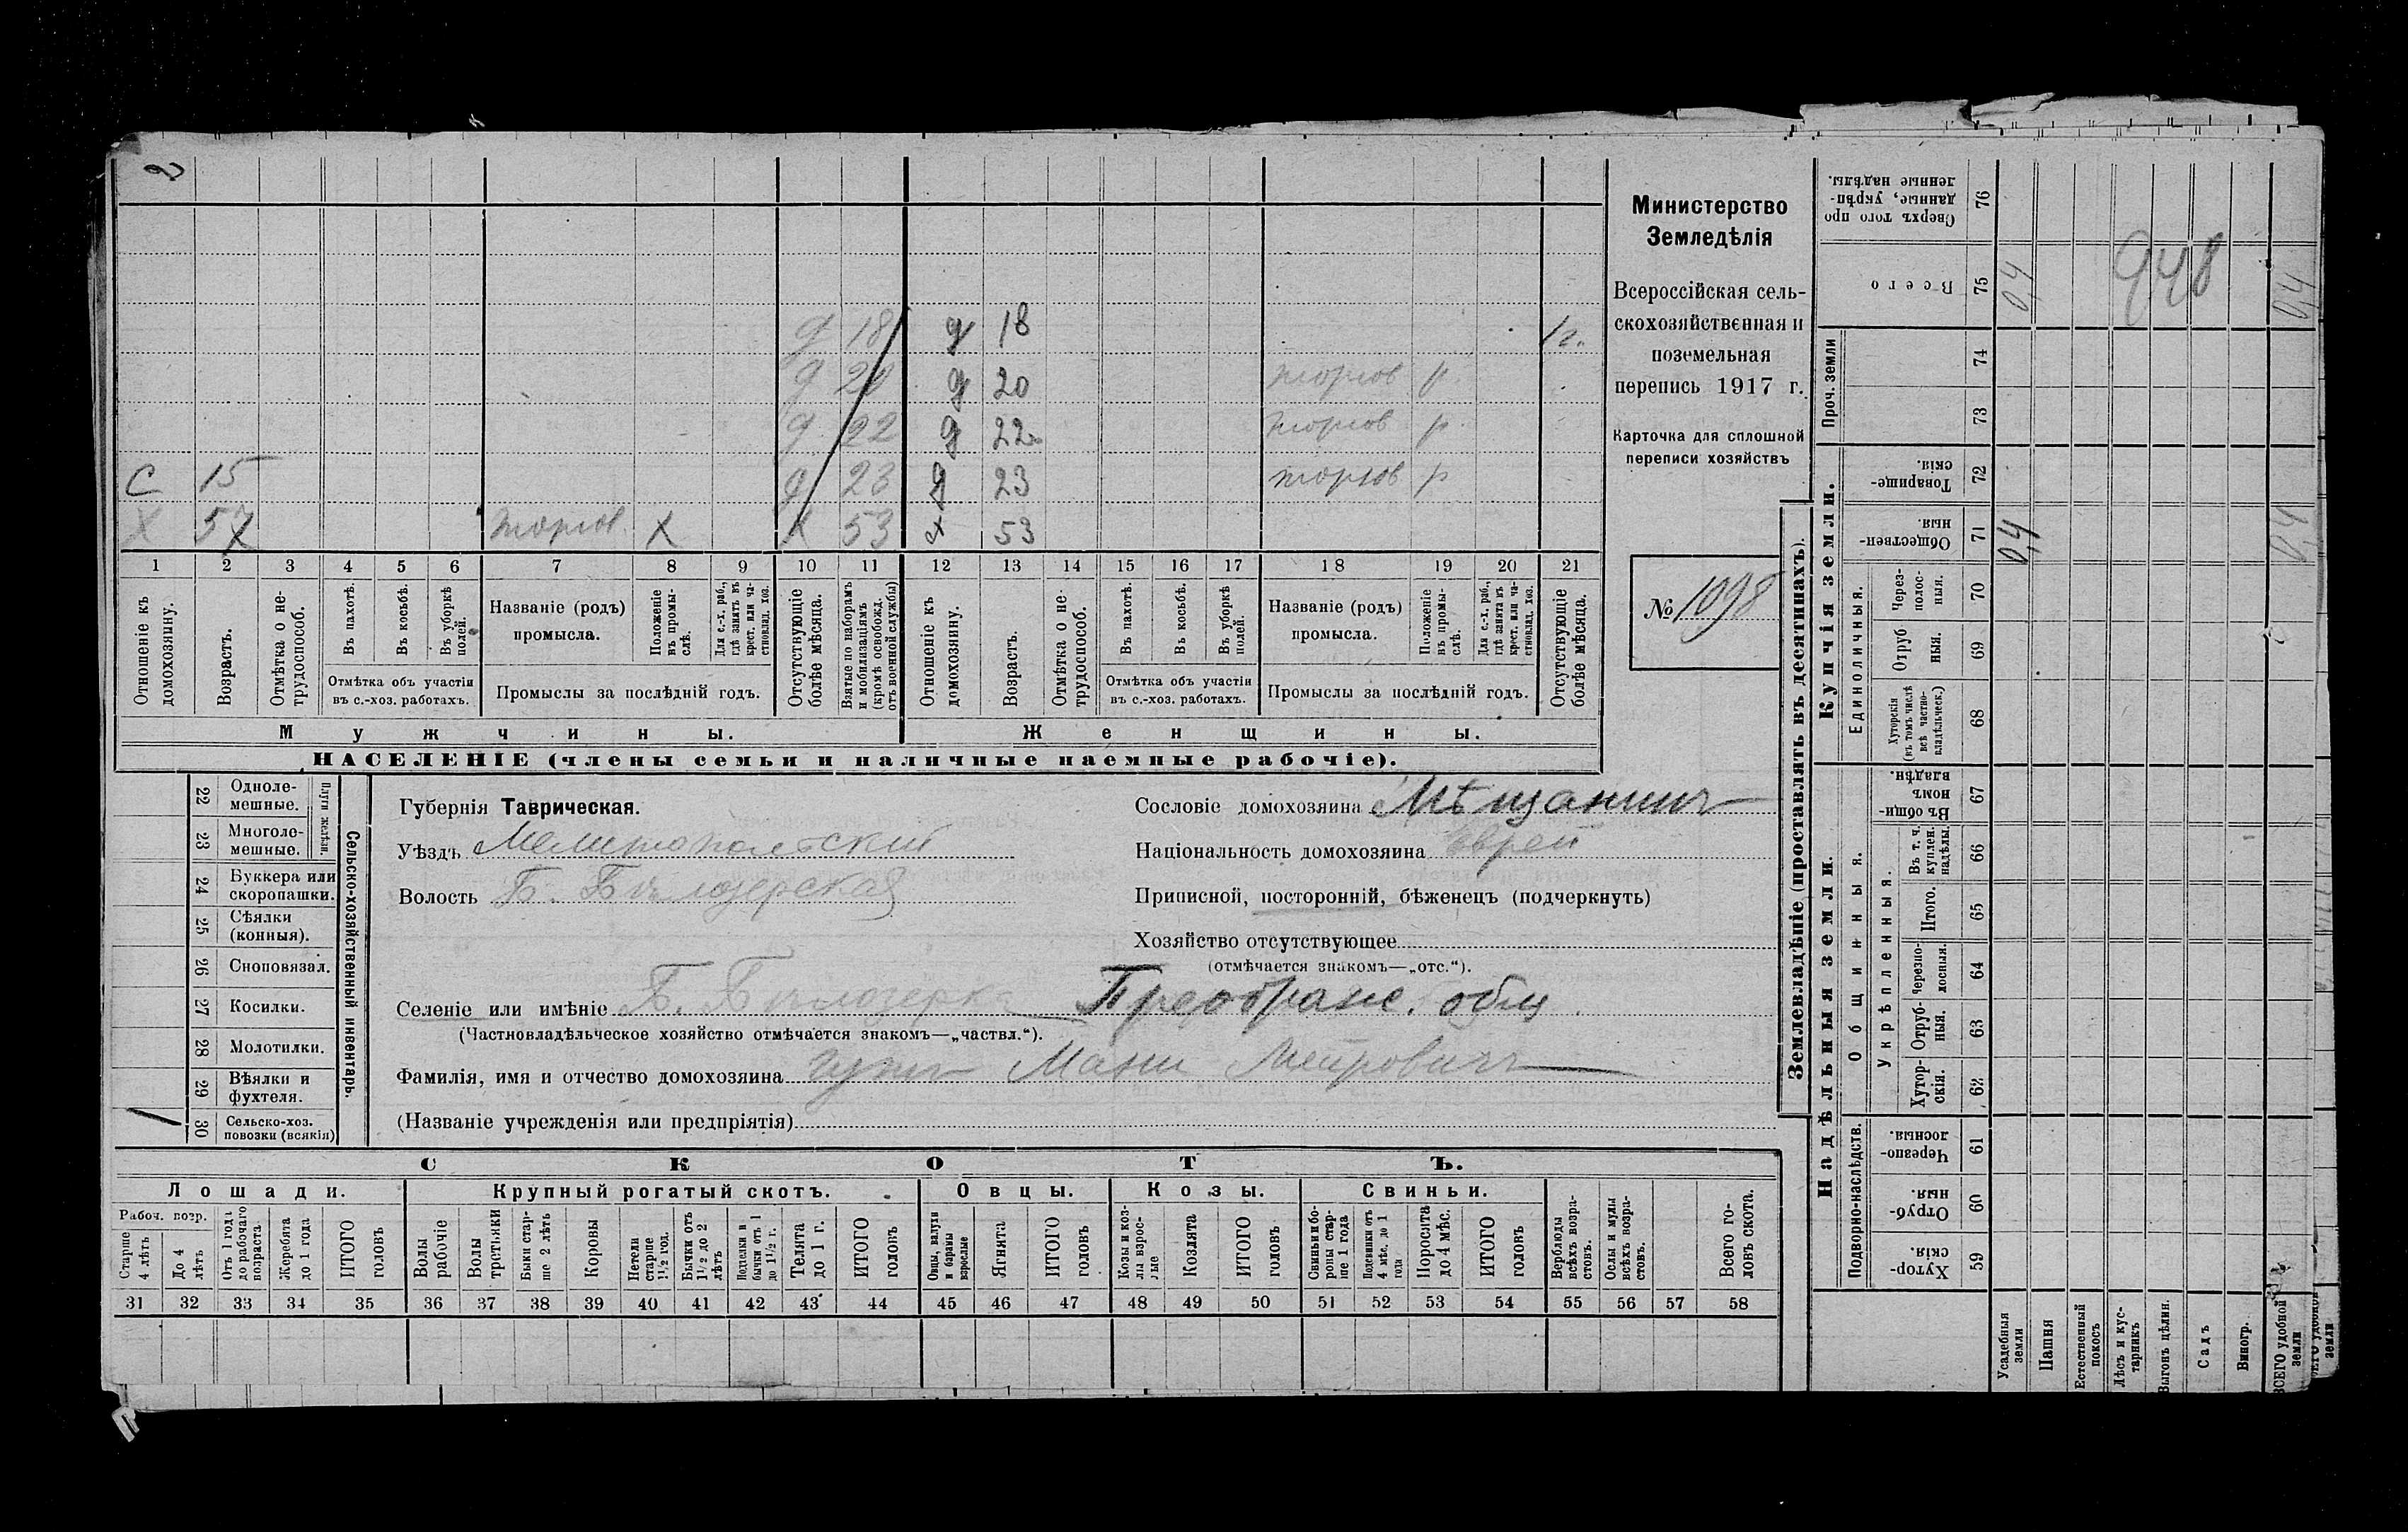 2
д 18 д 18 1 г.
д 20 д 20 торгов р
д 22 д 22 торгов р
С 15 д 23 д 23 торгов р
Х 57 торгов. х х 53 х 53
1 2 3 4 5 6 7 8 9 10 11 12 13 14 15 16 17 18 19 20 21
Отношеніе къ домохозяину.
Возрастъ.
Отмѣтка о не-трудоспособ.
Въ пахотѣ.
Въ косьбѣ.
Въ уборкѣ полей.
Отмѣтка объ участіи
въ с.-хоз. работахъ.
Названіе (родъ)
промысла.
Положеніе въ промы-слѣ.
Для с.-х. раб., гдѣ занятъ въ крест. или ча-стновлад. хоз.
Промыслы за послѣдній годъ.
Отсутствующіе болѣе мѣсяца.
Взятые по наборамъ и мобилизаціямъ (кромѣ освобожд. отъ военной службы)
Отношеніе къ домохозяину.
Возрастъ.
Отмѣтка о не-трудоспособ.
Въ пахотѣ.
Въ косьбѣ.
Въ уборкѣ полей.
Отмѣтка объ участіи
въ с.-хоз. работахъ.
Названіе (родъ)
промысла.
Положеніе въ промы-слѣ.
Для с.-х. раб., гдѣ занята въ крест. или ча-стновлад. хоз.
Промыслы за послѣдній годъ.
Отсутствующіе болѣе мѣсяца.
Мужчины. Женщины.
НАСЕЛЕНІЕ (члены семьи и наличные наемные рабочіе).
Министерство
Земледѣлія
Всероссійская сель-
скохозяйственная и
поземельная
перепись 1917 г.
Карточка для сплошной
переписи хозяйствъ
№ 1098
22 Одноле-мешные.
23 Многоле-мешные.
Плуги желѣзн.
24 Буккера или скоропашки.
25 Сѣялки (конныя).
26 Сноповязал.
27 Косилки.
28 Молотилки.
29 Вѣялки и фухтеля.
/ 30 Сельско-хоз. повозки (всякія)
Сельско-хозяйственный инвентарь.
Губернія Таврическая.
Уѣздъ Мелитопольскій
Волость Б. Бѣлозерская
Селеніе или имѣніе Б. Бѣлозерка Преображ. общ
(Частновладѣльческое хозяйство отмѣчается знакомъ—„частвл.“).
Фамилія, имя и отчество домохозяина
(Названіе учрежденія или предпріятія)
Сословіе домохозяина Мѣщанинъ
Національность домохозяина Еврей
Приписной, посторонній, бѣженецъ (подчеркнуть)
Хозяйство отсутствующее
(отмѣчается знакомъ—„отс.“).
СКОТЪ.
Лошади. Крупный рогатый скотъ. Овцы. Козы. Свиньи.
Рабоч. возр.
Старше 4 лѣтъ
До 4 лѣтъ
Отъ 1 года до рабочаго возраста
Жеребята до 1 года
ИТОГО головъ
Волы рабочіе
Волы третьяки
Быки стар-ше 2 лѣтъ
Коровы
Нетели старше 1½ год.
Бычки отъ 1½ до 2 лѣтъ
Телята до 1 г.
ИТОГО головъ
Овцы, валухи и бараны взрослые
Ягнята
ИТОГО головъ
Козы и коз-лы взрос-лые
Козлята
ИТОГО головъ
Свиньи и бо-ровы стар-ше 1 года
Подсвинки отъ 4 мѣс. до 1 года
Поросята до 4 мѣс.
ИТОГО головъ
Верблюды всѣхъ возра-стовъ.
Ослы и мулы всѣхъ возра-стовъ.
Всего го-ловъ скота.
31 32 33 34 35 36 37 38 39 40 41 42 43 44 45 46 47 48 49 50 51 52 53 54 55 56 57 58
Землевладѣніе (проставлять въ десятинахъ).
Сверхъ того про-данные, укрѣп-ленные надѣлы. 76
Всего 75 0,4 948 0,4
Проч. земли 74
73
Купчія земли.
Товарище-скія. 72
Обществен-ныя. 71 0,4 0,4
Единоличныя.
Через-полос-ныя. 70
Отруб-ныя. 69
Хуторскія (въ томъ числѣ всѣ частно-владѣльческ.) 68
Надѣльныя земли.
Общинныя.
Въ общин-номъ владѣн. 67
Укрѣпленныя.
Въ т. ч. куплен. надѣлы. 66
Итого. 65
Черезпо-лосныя. 64
Отруб-ныя. 63
Хутор-скія. 62
Подворно-наслѣдств.
Черезпо-лосныя. 61
Отруб-ныя. 60
Хутор-скія. 59
Усадебныя земли
Пашня
Естественный покосъ
Лѣсъ и кус-тарникъ
Выгонъ цѣлин.
Садъ
Виногр.
ВСЕГО удобной земли